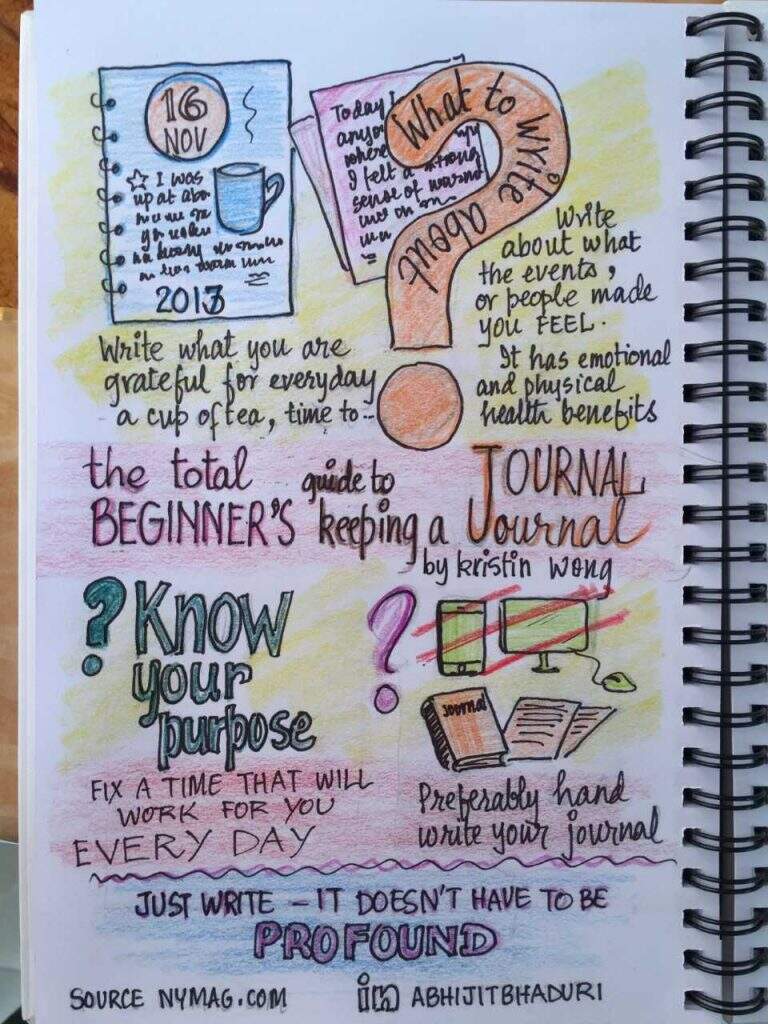 16
NOV
I was
up at
2013
Today I
where
I felt a strong
sense of
What to write about
Write
about what
the events,
or people made
you FEEL.
It has emotional
and physical
health benefits
Write what you are
grateful for everyday
a cup of tea, time to..
the total guide to JOURNAL
BEGINNER'S keeping a Journal
by kristin wong
? Know
your
purpose
?
Journal
FIX A TIME THAT WILL
WORK FOR YOU
EVERY DAY
Preferably hand
write your journal
JUST WRITE – IT DOESN'T HAVE TO BE
PROFOUND
SOURCE NYMAG.COM
in ABHIJITBHADURI